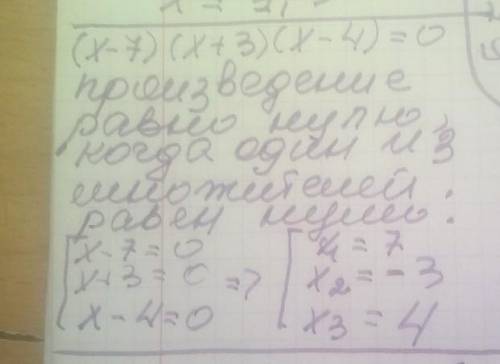 (x-7)(x+3)(x-4)=0
произведение
равно нулю,
когда один из
множителей
равен нулю:
x-7=0
x+3=0 => x₂=-3
x-4=0 x₃=4